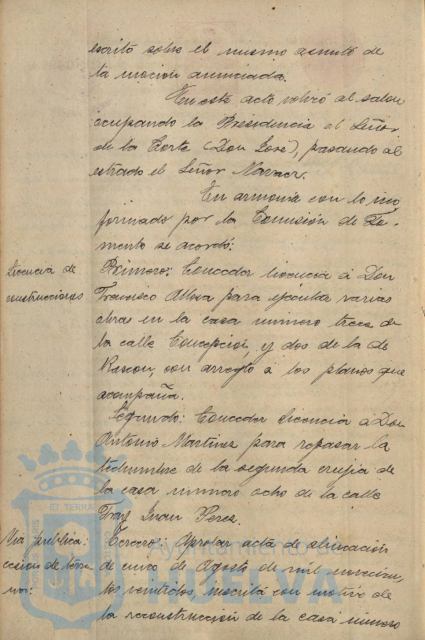 escrito sobre el mismo asunto de
la mocion anunciada.
En este acto volvió al salon
ocupando la Presidencia el Señor
de la Corte (Don José), pasando al
estrado el Señor
En armonia con lo in-
formado por la Comisión de Fo-
mento se acordó:
Licencia de
construcciones
Primero: Conceder licencia á Don
Francisco para ejecutar varias
obras en la casa número trece de
la calle Concepcion, y dos de la de
Rascon, con arreglo á los planos que
acompaña.
Segundo: Conceder licencia á Don
Antonio Martinez para repasar la
techumbre de la segunda crujia de
la casa número ocho de la calle
Fray Juan Perez.
Via publica:
cesion de terre
no:
Tercero: Aprobar acta de alineación
de cinco de Agosto de mil novecien
tos veintidos, inscrita con motivo de
la reconstrucción de la casa número
Ayuntamiento
HUELVA